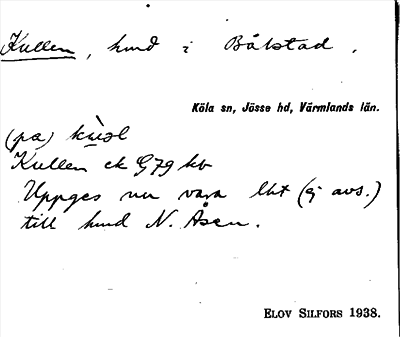 Kullen, hmd i Bålstad.
Köla sn, Jösse hd, Värmlands län.
(på)
Kullen ek G79 kv
Uppges nu vara lht (ej avs.)
till hmd N. Åsen.
ELOV SILFORS 1938.